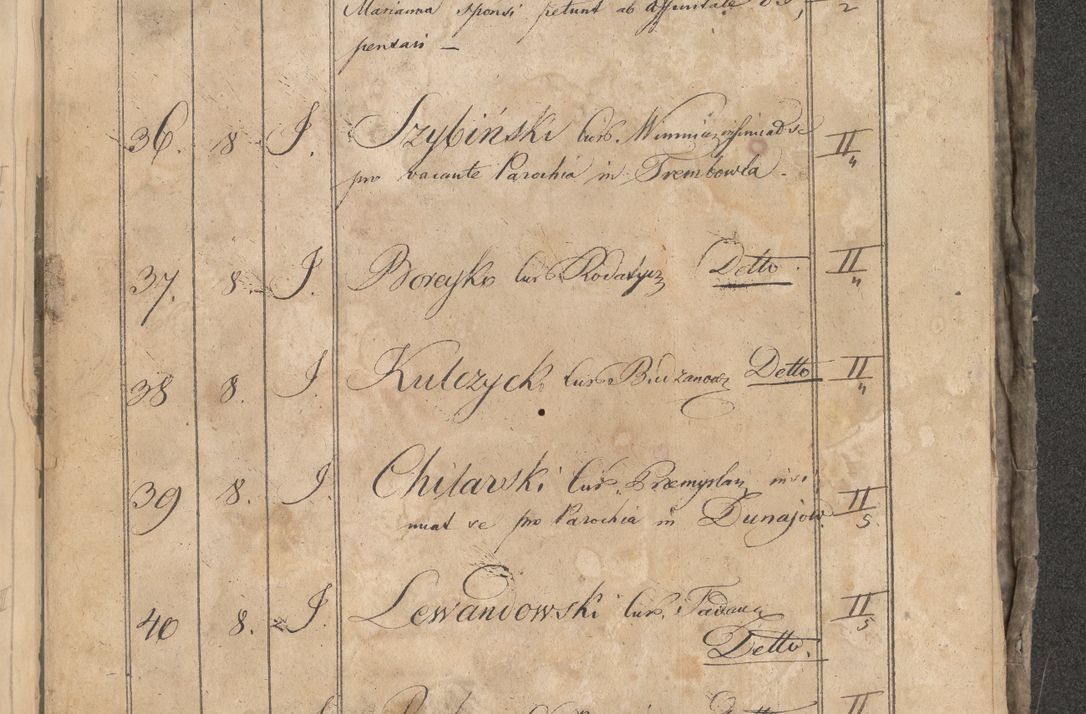 Marianna sponsi petunt ab affinitate
2
pensari —
36. 8 J. Szybiński Cur. se II/4
pro vacante Parochia in Trembowla.
37. 8. J. Boreyko Cur. Rodatycz Detto. II/4
38 8. J. Kulczycki Cur. Budzanow Detto II/4
39 8. J. Chilarski Cur. Premyslan insi
nuat se pro Parochia in Dunajow. II/5
40 8. J. Lewandowski Cur. II/5
Detto.
II